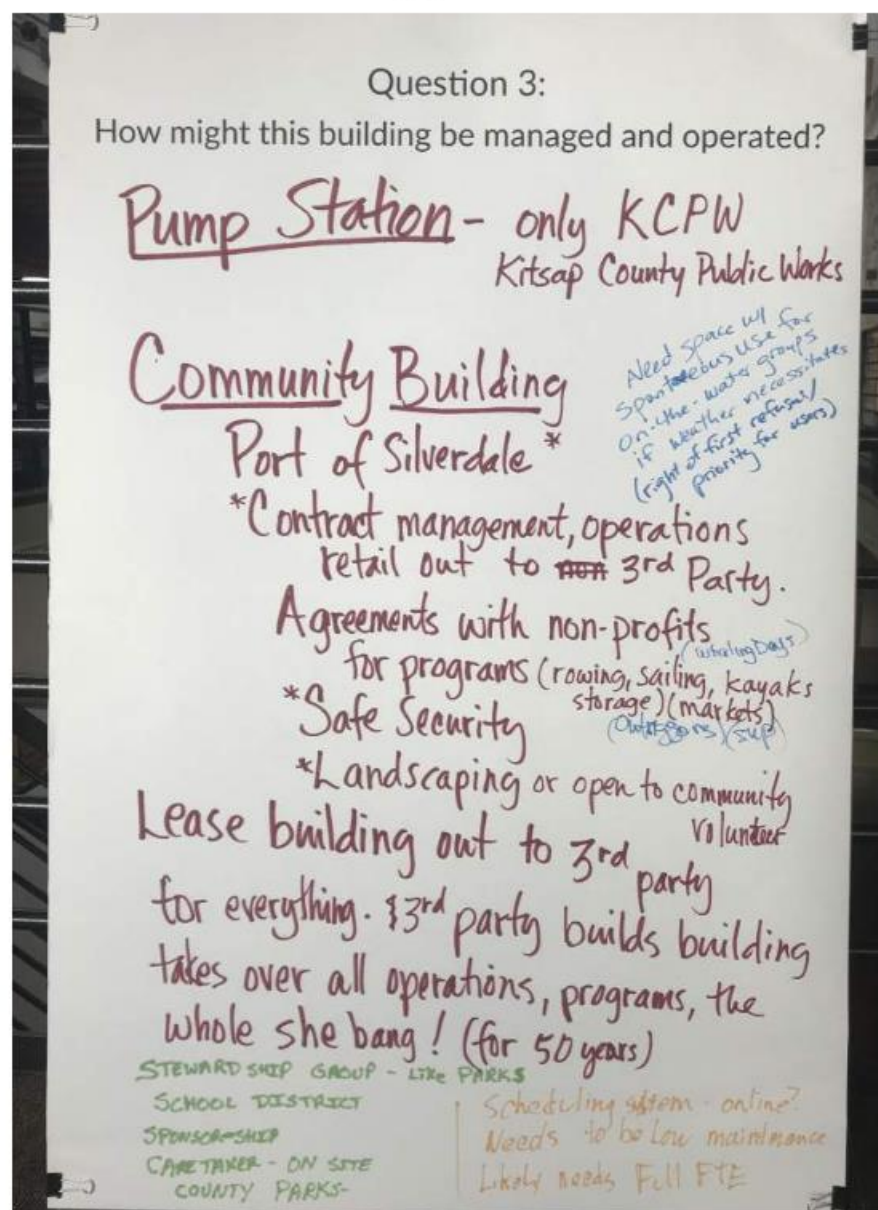 Question 3:
How might this building be managed and operated?
Pump Station - only KCPW
Kitsap County Public Works
Need space w/
spontaneous use for
on-the-water groups
if weather necessitates
(right of first refusal/
priority for users)
Community Building
Port of Silverdale *
*Contract management, operations
retail out to non 3rd Party.
Agreements with non-profits
(Whaling Days)
for programs (rowing, sailing, kayaks
storage) (markets)
*Safe Security
(Outriggers) (sup)
*Landscaping or open to community
volunteer
Lease building out to 3rd
party
for everything. $3rd party builds building
takes over all operations, programs, the
whole she bang! (for 50 years)
STEWARDSHIP GROUP - Like PARKS
SCHOOL DISTRICT
SPONSORSHIP
CARETAKER - ON SITE
COUNTY PARKS-
Scheduling system - online?
Needs to be low maintenance
Likely needs Full FTE